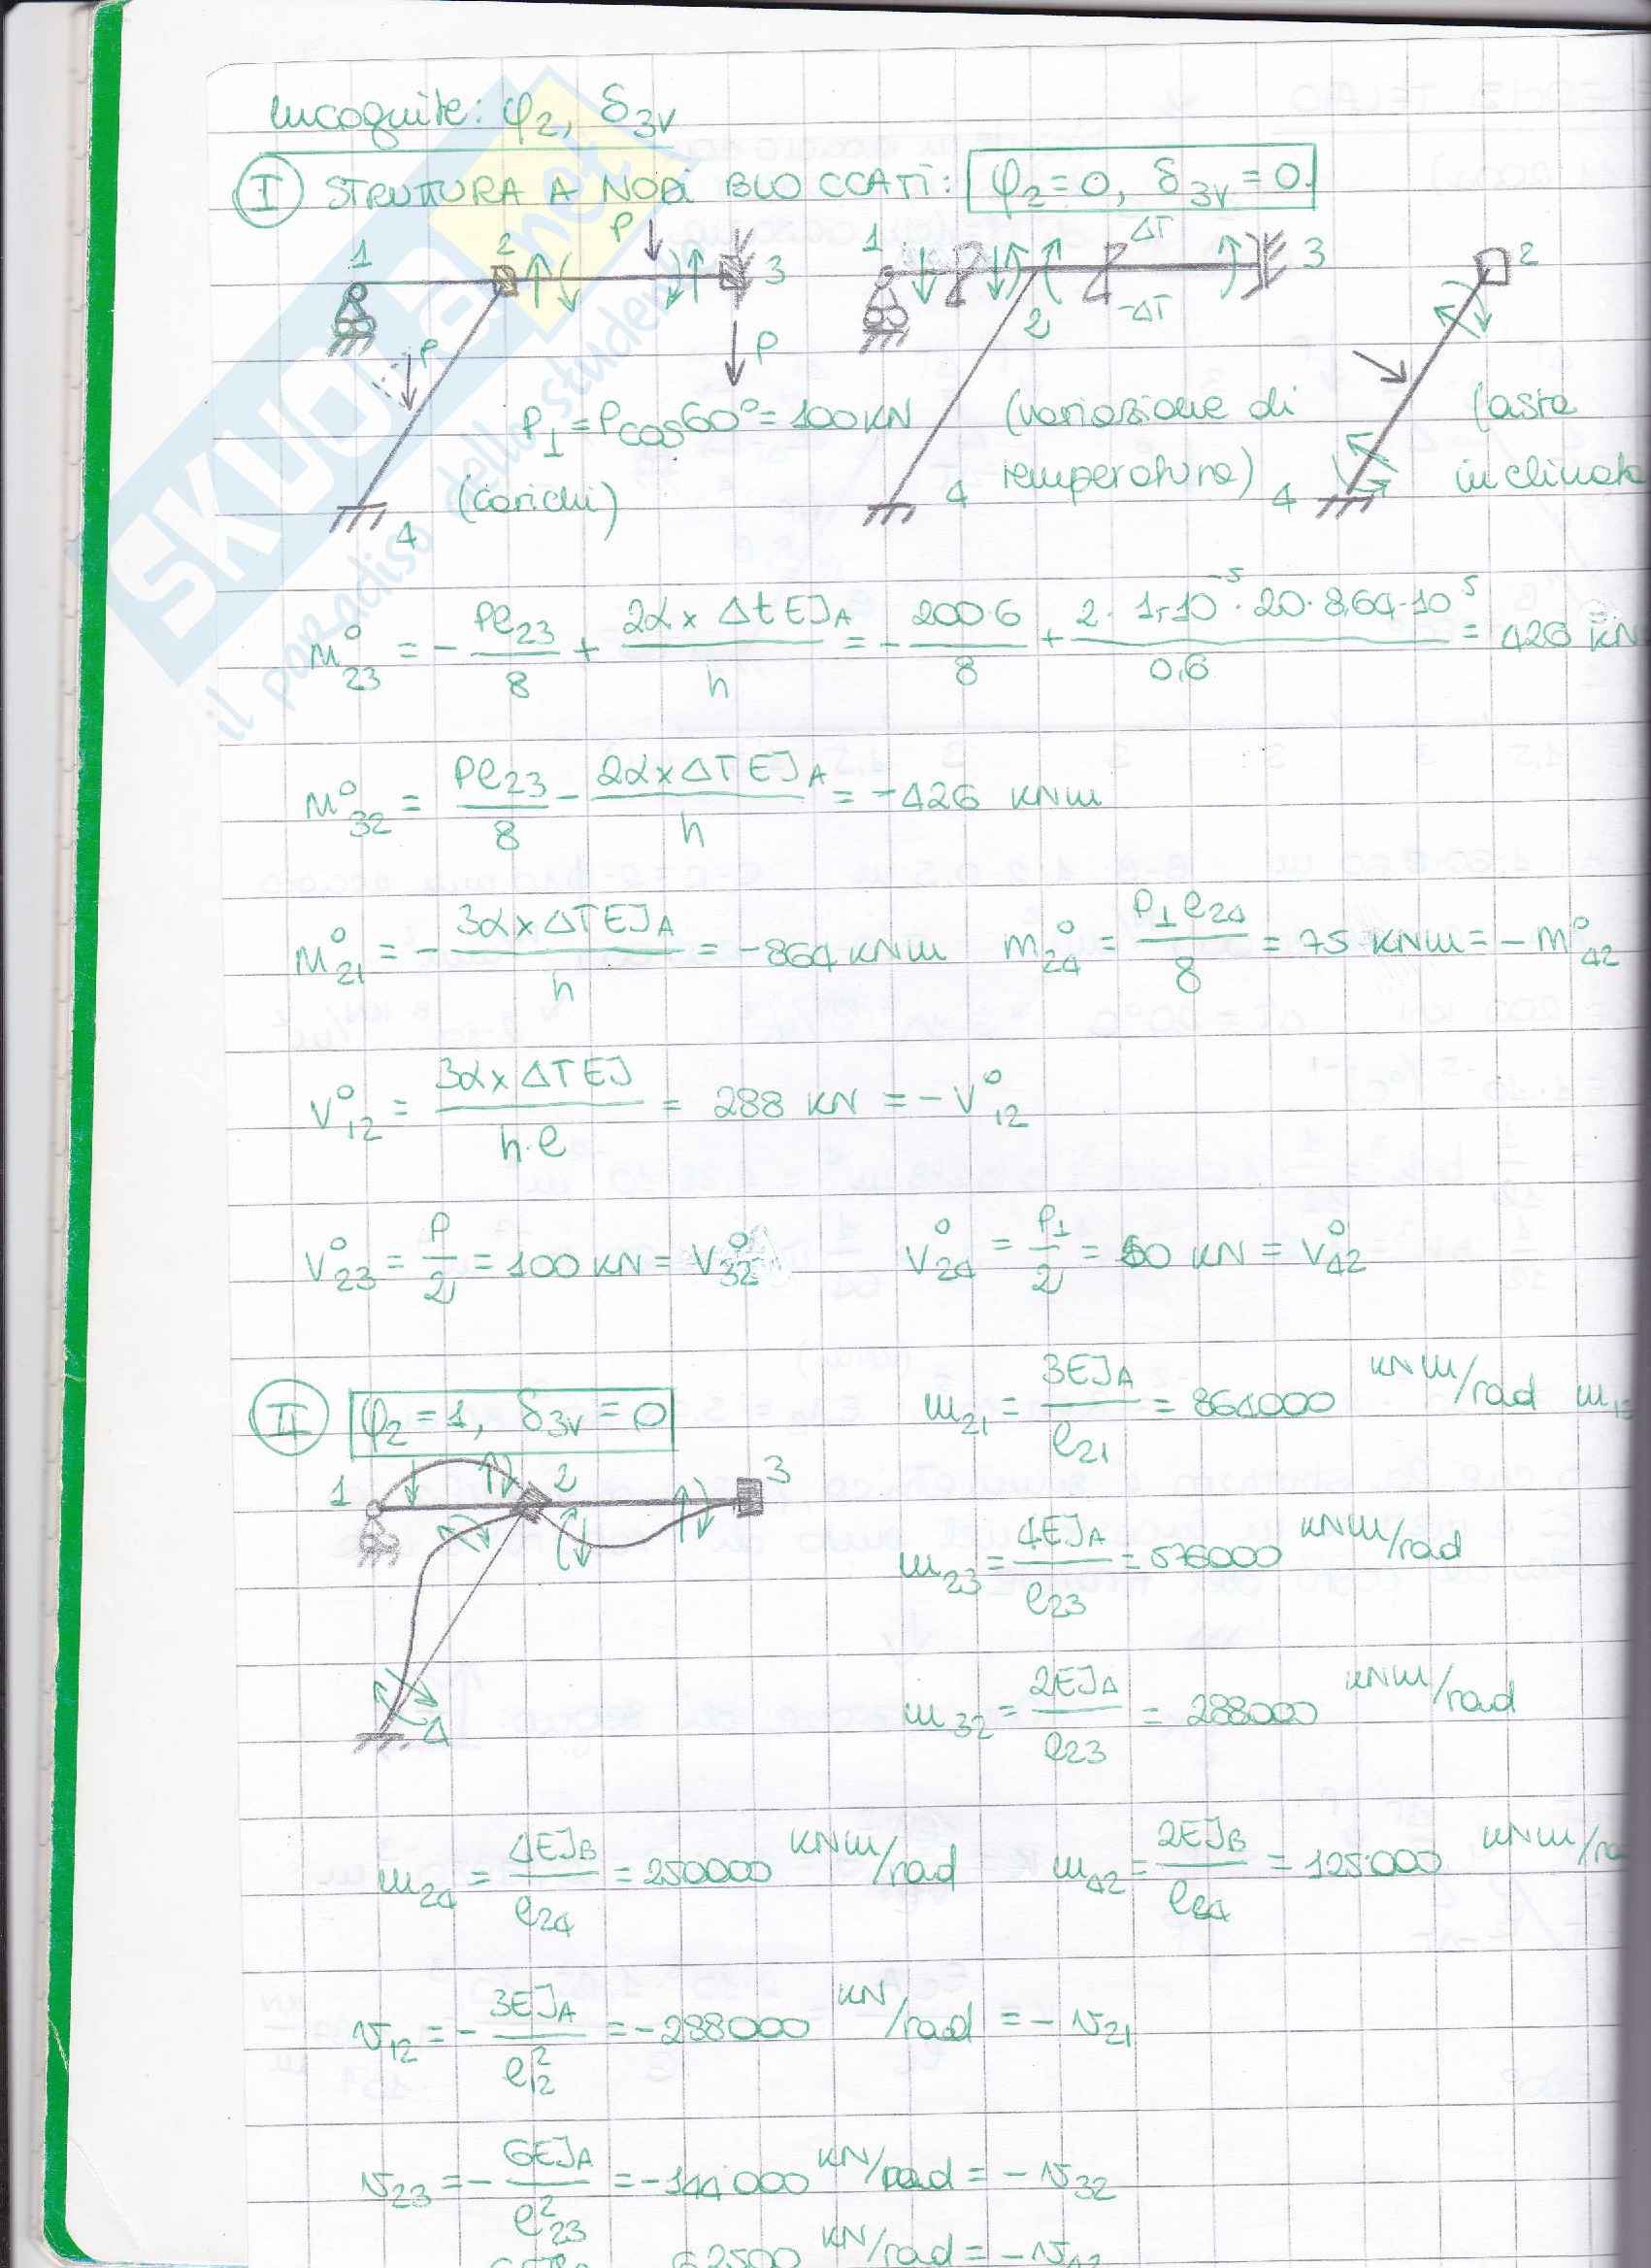 Incognite: φ2, δ3V
I STRUTTURA A NODI BLOCCATI: φ2=0, δ3V=0.
1 2 P 3 P P 4
P⊥=Pcos60°=100KN
(carichi)
1 2 ΔT -ΔT 3 4
(variazione di
temperatura)
2 4
(asta
inclinata
M°23 = - Pℓ23/8 + 2α×ΔtEJA/h = - 200·6/8 + 2·1,10⁻⁵·20·8,64·10⁵/0,6 = 426 KN
M°32 = Pℓ23/8 - 2α×ΔTEJA/h = -426 KNm
M°21 = - 3α×ΔTEJA/h = -864 KNm M°24 = P⊥ℓ24/8 = 75 KNm = -M°42
V°12 = 3α×ΔTEJ/h·ℓ = 288 KN = -V°12
V°23 = P/2 = 100 KN = V°32 V°24 = P⊥/2 = 50 KN = V°42
II φ2=1, δ3V=0
1 2 3 4
m21 = 3EJA/ℓ21 = 864000 KNm/rad
m23 = 4EJA/ℓ23 = 576000 KNm/rad
m32 = 2EJA/ℓ23 = 288000 KNm/rad
m24 = 4EJB/ℓ24 = 250000 KNm/rad m42 = 2EJB/ℓ24 = 125000 KNm/ra
v12 = - 3EJA/ℓ²12 = -288000 KN/rad = -v21
v23 = - 6EJA/ℓ²23 = -144000 KN/rad = -v32
62500 KN/rad = -v42
SKUOLA.net
il paradiso dello studente